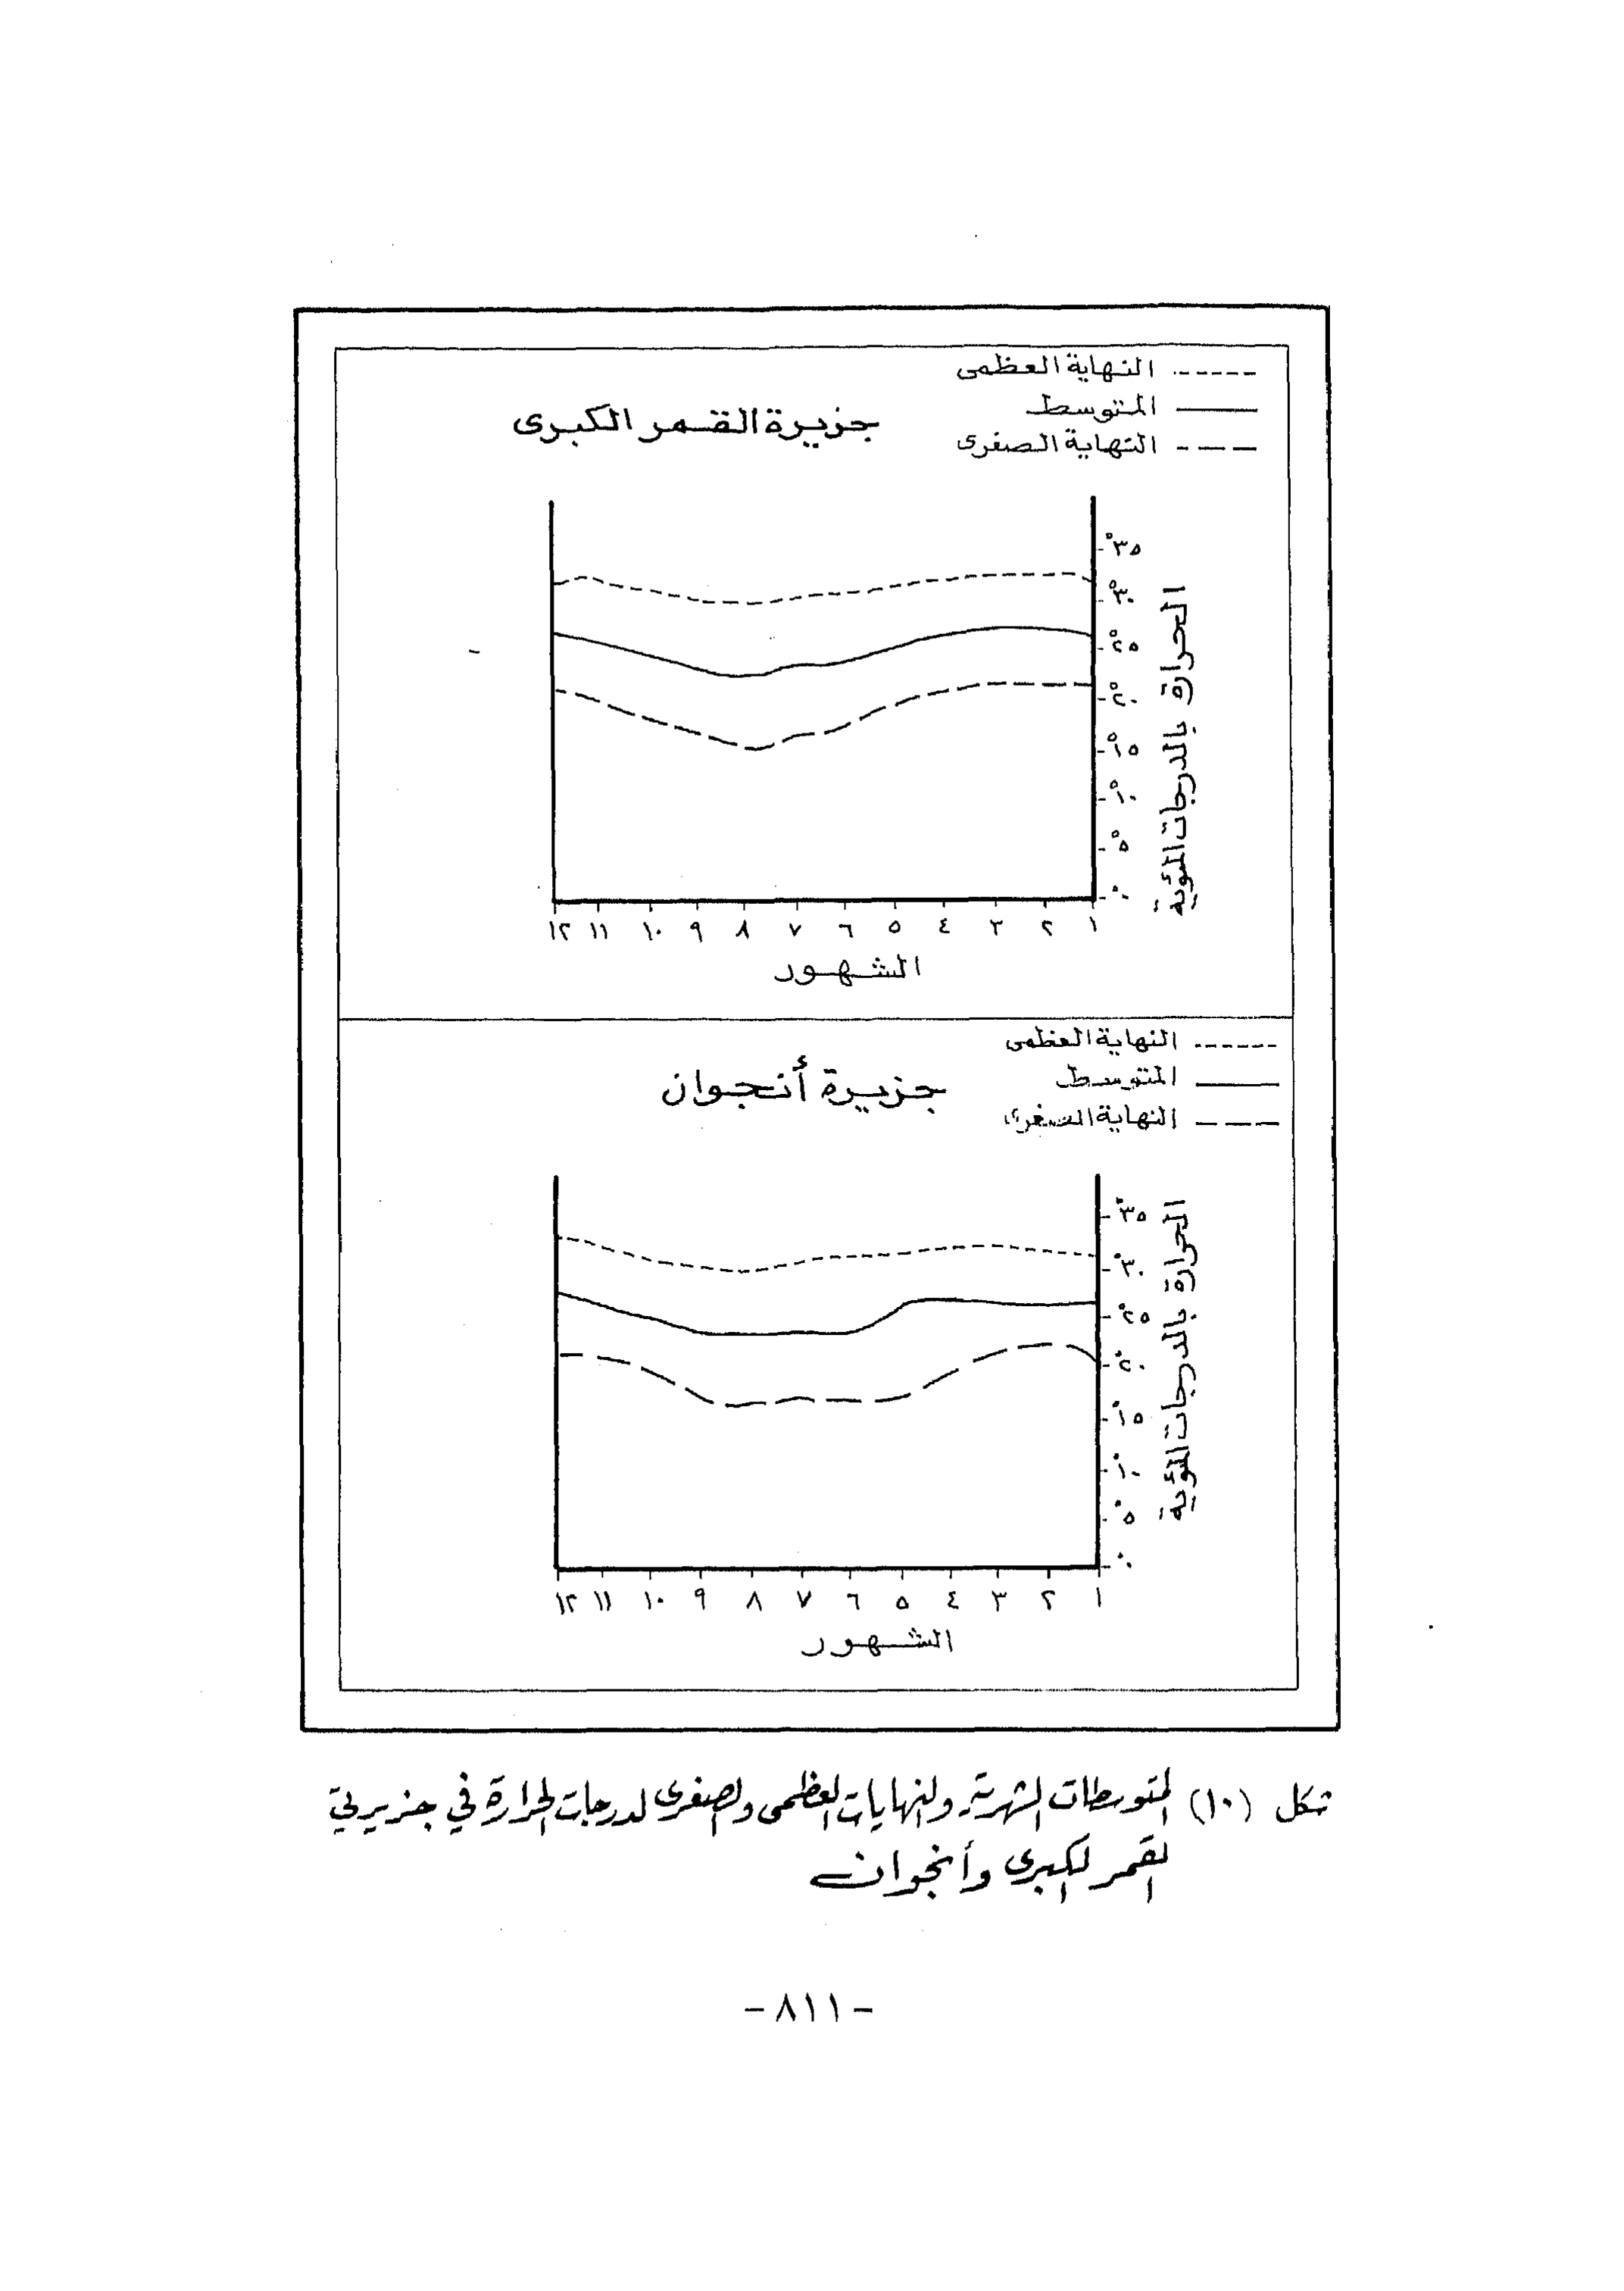 النهاية العظمى
المتوسط
النهاية الصغرى
جزيرة القمر الكبرى
الحرارة بالدرجات المئوية
°٣٥
°٣٠
°٢٥
°٢٠
°١٥
°١٠
°٥
°٠
١ ٢ ٣ ٤ ٥ ٦ ٧ ٨ ٩ ١٠ ١١ ١٢
الشهور
النهاية العظمى
المتوسط
النهاية الصغرى
جزيرة أنجوان
الحرارة بالدرجات المئوية
°٣٥
°٣٠
°٢٥
°٢٠
°١٥
°١٠
°٥
°٠
١ ٢ ٣ ٤ ٥ ٦ ٧ ٨ ٩ ١٠ ١١ ١٢
الشهور
شكل (١٠) المتوسطات الشهرية والنهايات العظمى والصغرى لدرجات الحرارة في جزيرتي
القمر الكبرى وأنجوان
- ٨١١ -